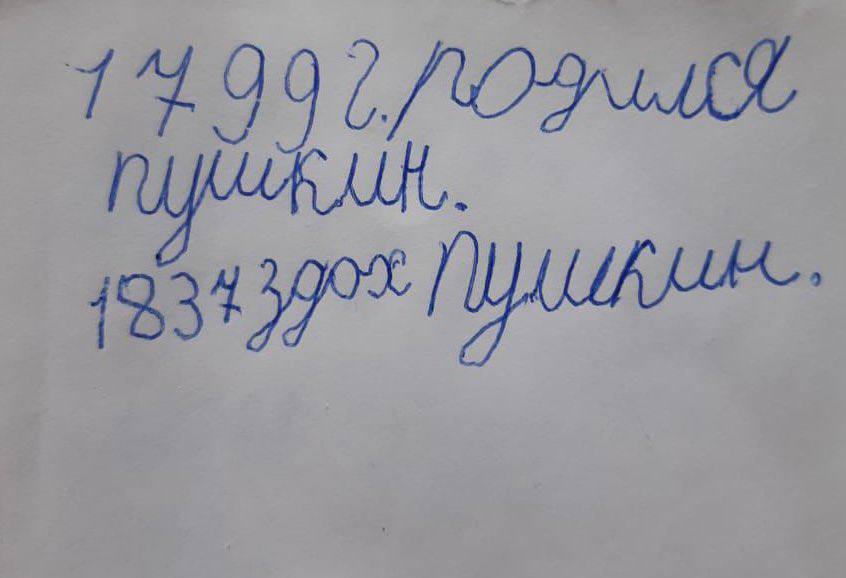 1799г. родился
пушкин.
1837 здох Пушкин.